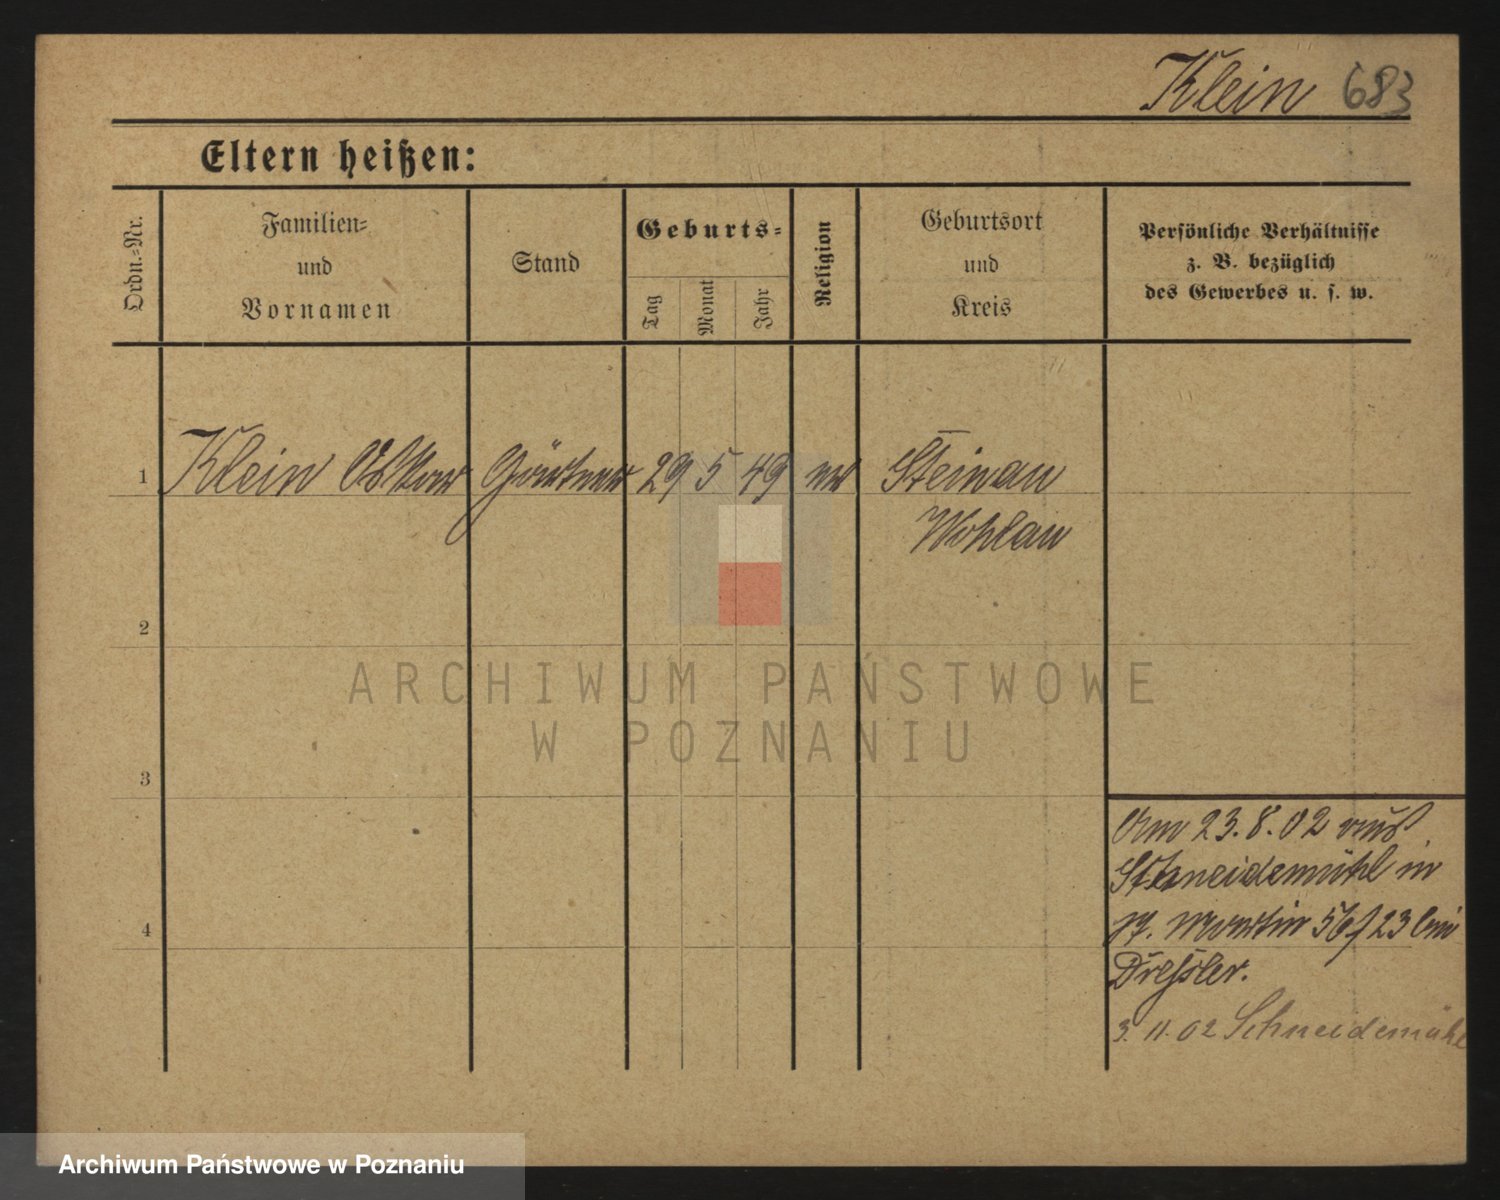 Klein 683
Eltern heißen:
Ordn.-Nr.
Familien-
und
Vornamen
Stand
Geburts-
Tag
Monat
Jahr
Religion
Geburtsort
und
Kreis
Persönliche Verhältnisse
z. B. bezüglich
des Gewerbes u. s. w.
1 Klein Oskar Gärtner 29 5 49 ev Steinau
Wohlau
2
ARCHIWUM PAŃSTWOWE
W POZNANIU
3
Am 23.8.02 aus
Schneidemühl in
4
Martin 56/23 bei
Dreßler.
3. 11. 02 Schneidemühl
Archiwum Państwowe w Poznaniu